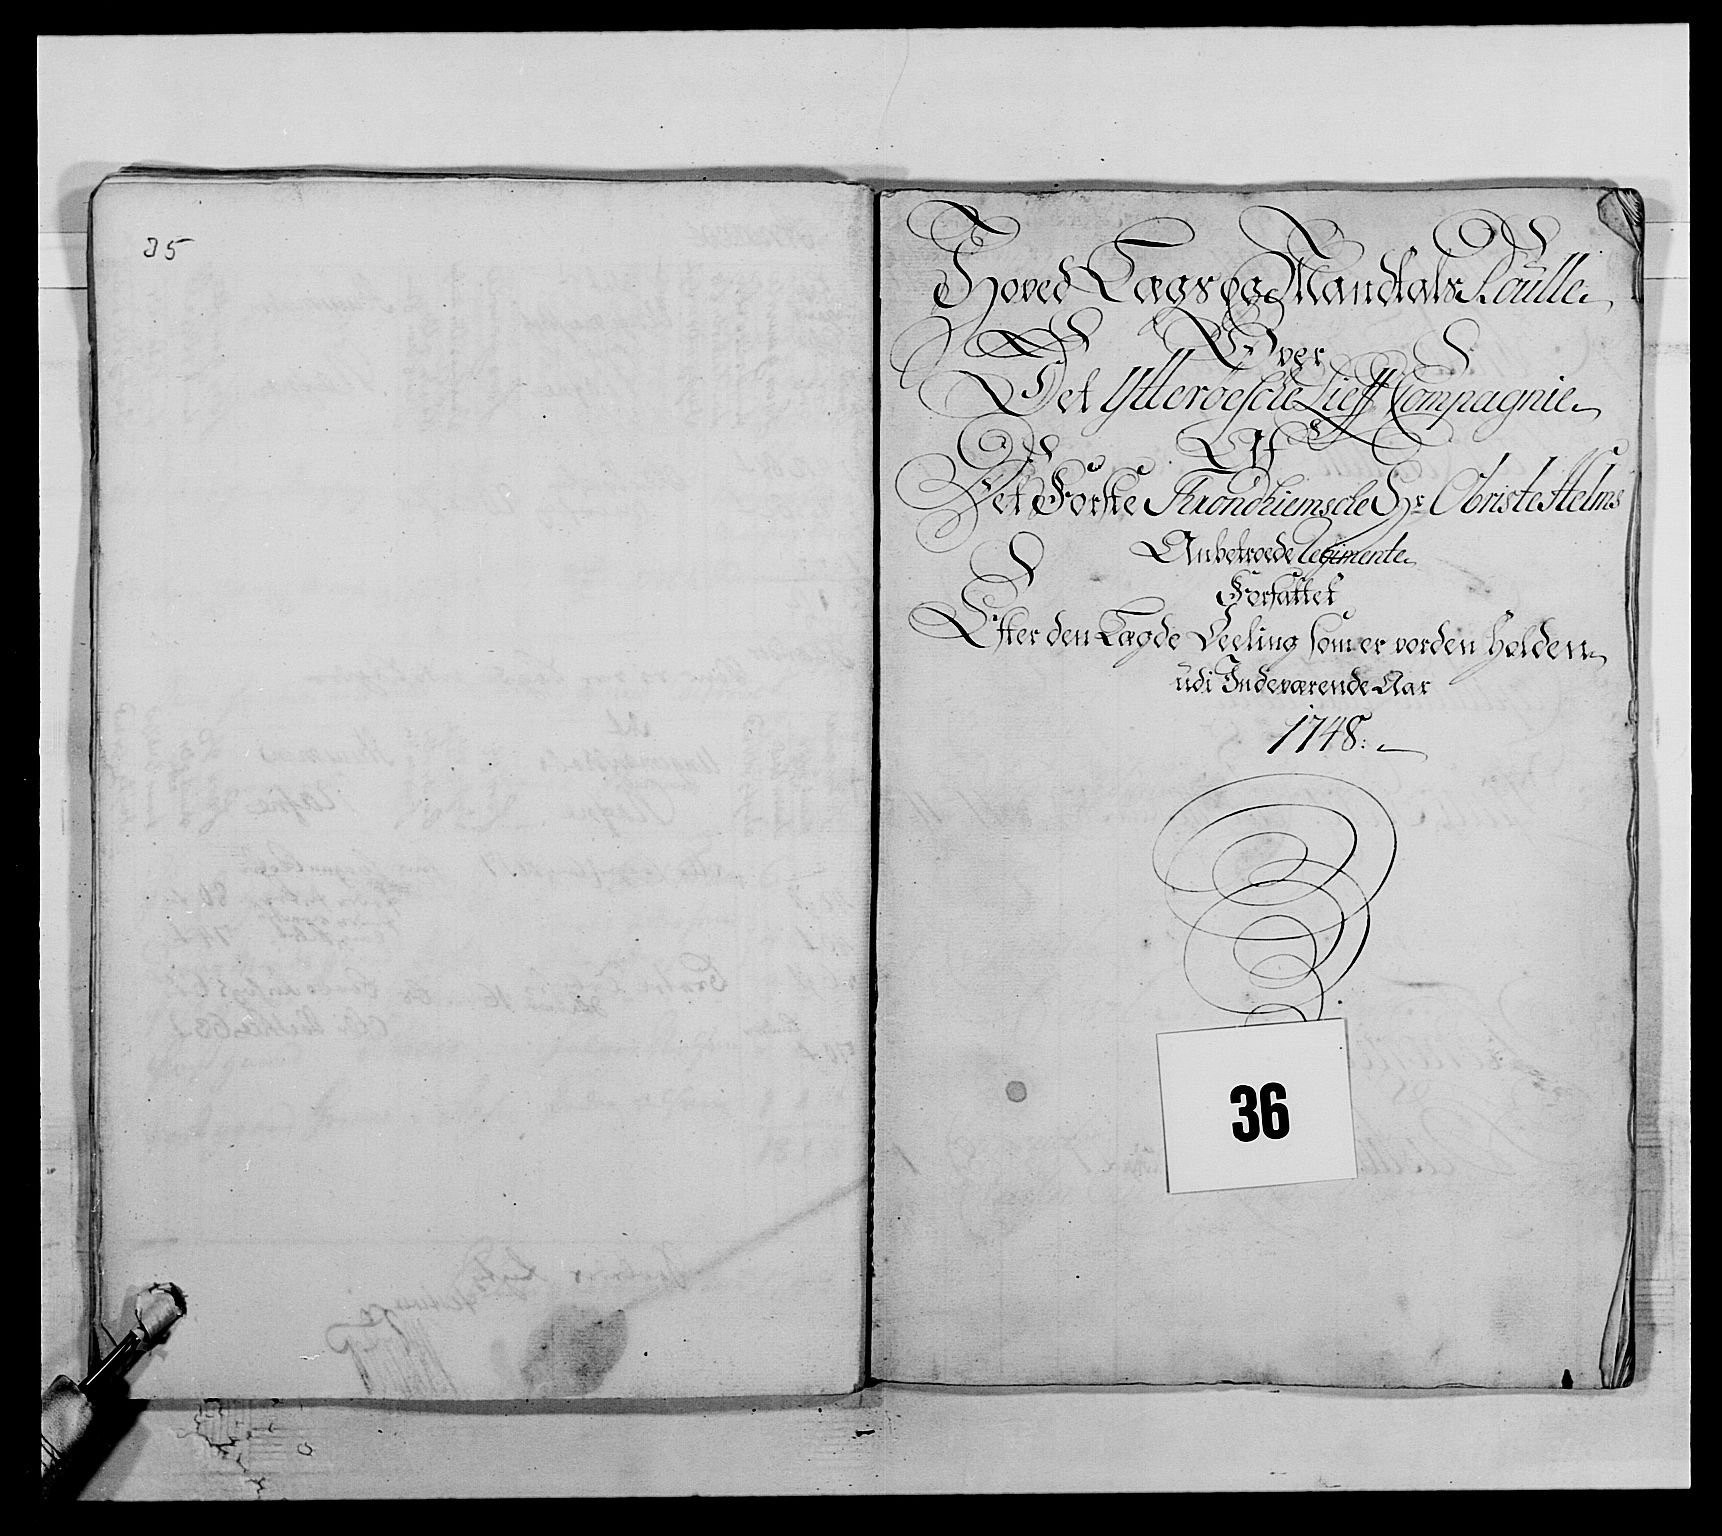 35
Hoved Lægs og Mandtals Roulle
Over
Det Ytterøesche Lieff Compagnie
Af
Det Første Trondhiemsche Hr Obriste Helms
Anbetroede Regimente
Forfattet
Efter den Lægde Deeling som er vorden Holden
udi Indeværende Aar
1748.
36